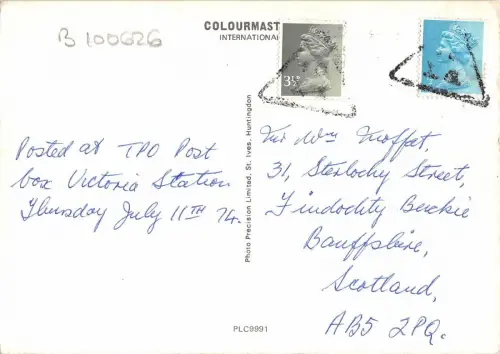 B 100626
COLOURMAST
INTERNATIONAL
3½P
Posted at TPO Post
box Victoria Station
Thursday July 11TH 74.
Photo Precision Limited, St. Ives, Huntingdon
Mr Wm Moffat,
31, Sterlochy Street,
Findochty Buckie
Banffshire,
Scotland,
AB5 2PQ.
PLC9991